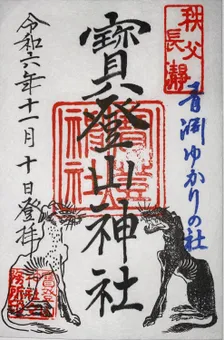 秩父
長瀞
青淵ゆかりの社
寳登山神社
令和六年十一月十日登拝